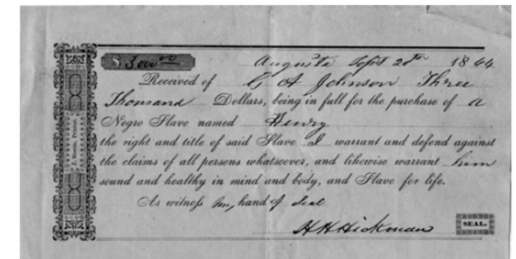 $ 3000 00 Augusta Sept 20th 1864
Received of G A Johnson Three
Thousand Dollars, being in full for the purchase of a
Negro Slave named Henry
the right and title of said Slave I warrant and defend against
the claims of all persons whatsoever, and likewise warrant him
sound and healthy in mind and body, and Slave for life.
As witness my hand & seal
H H Hickman SEAL.